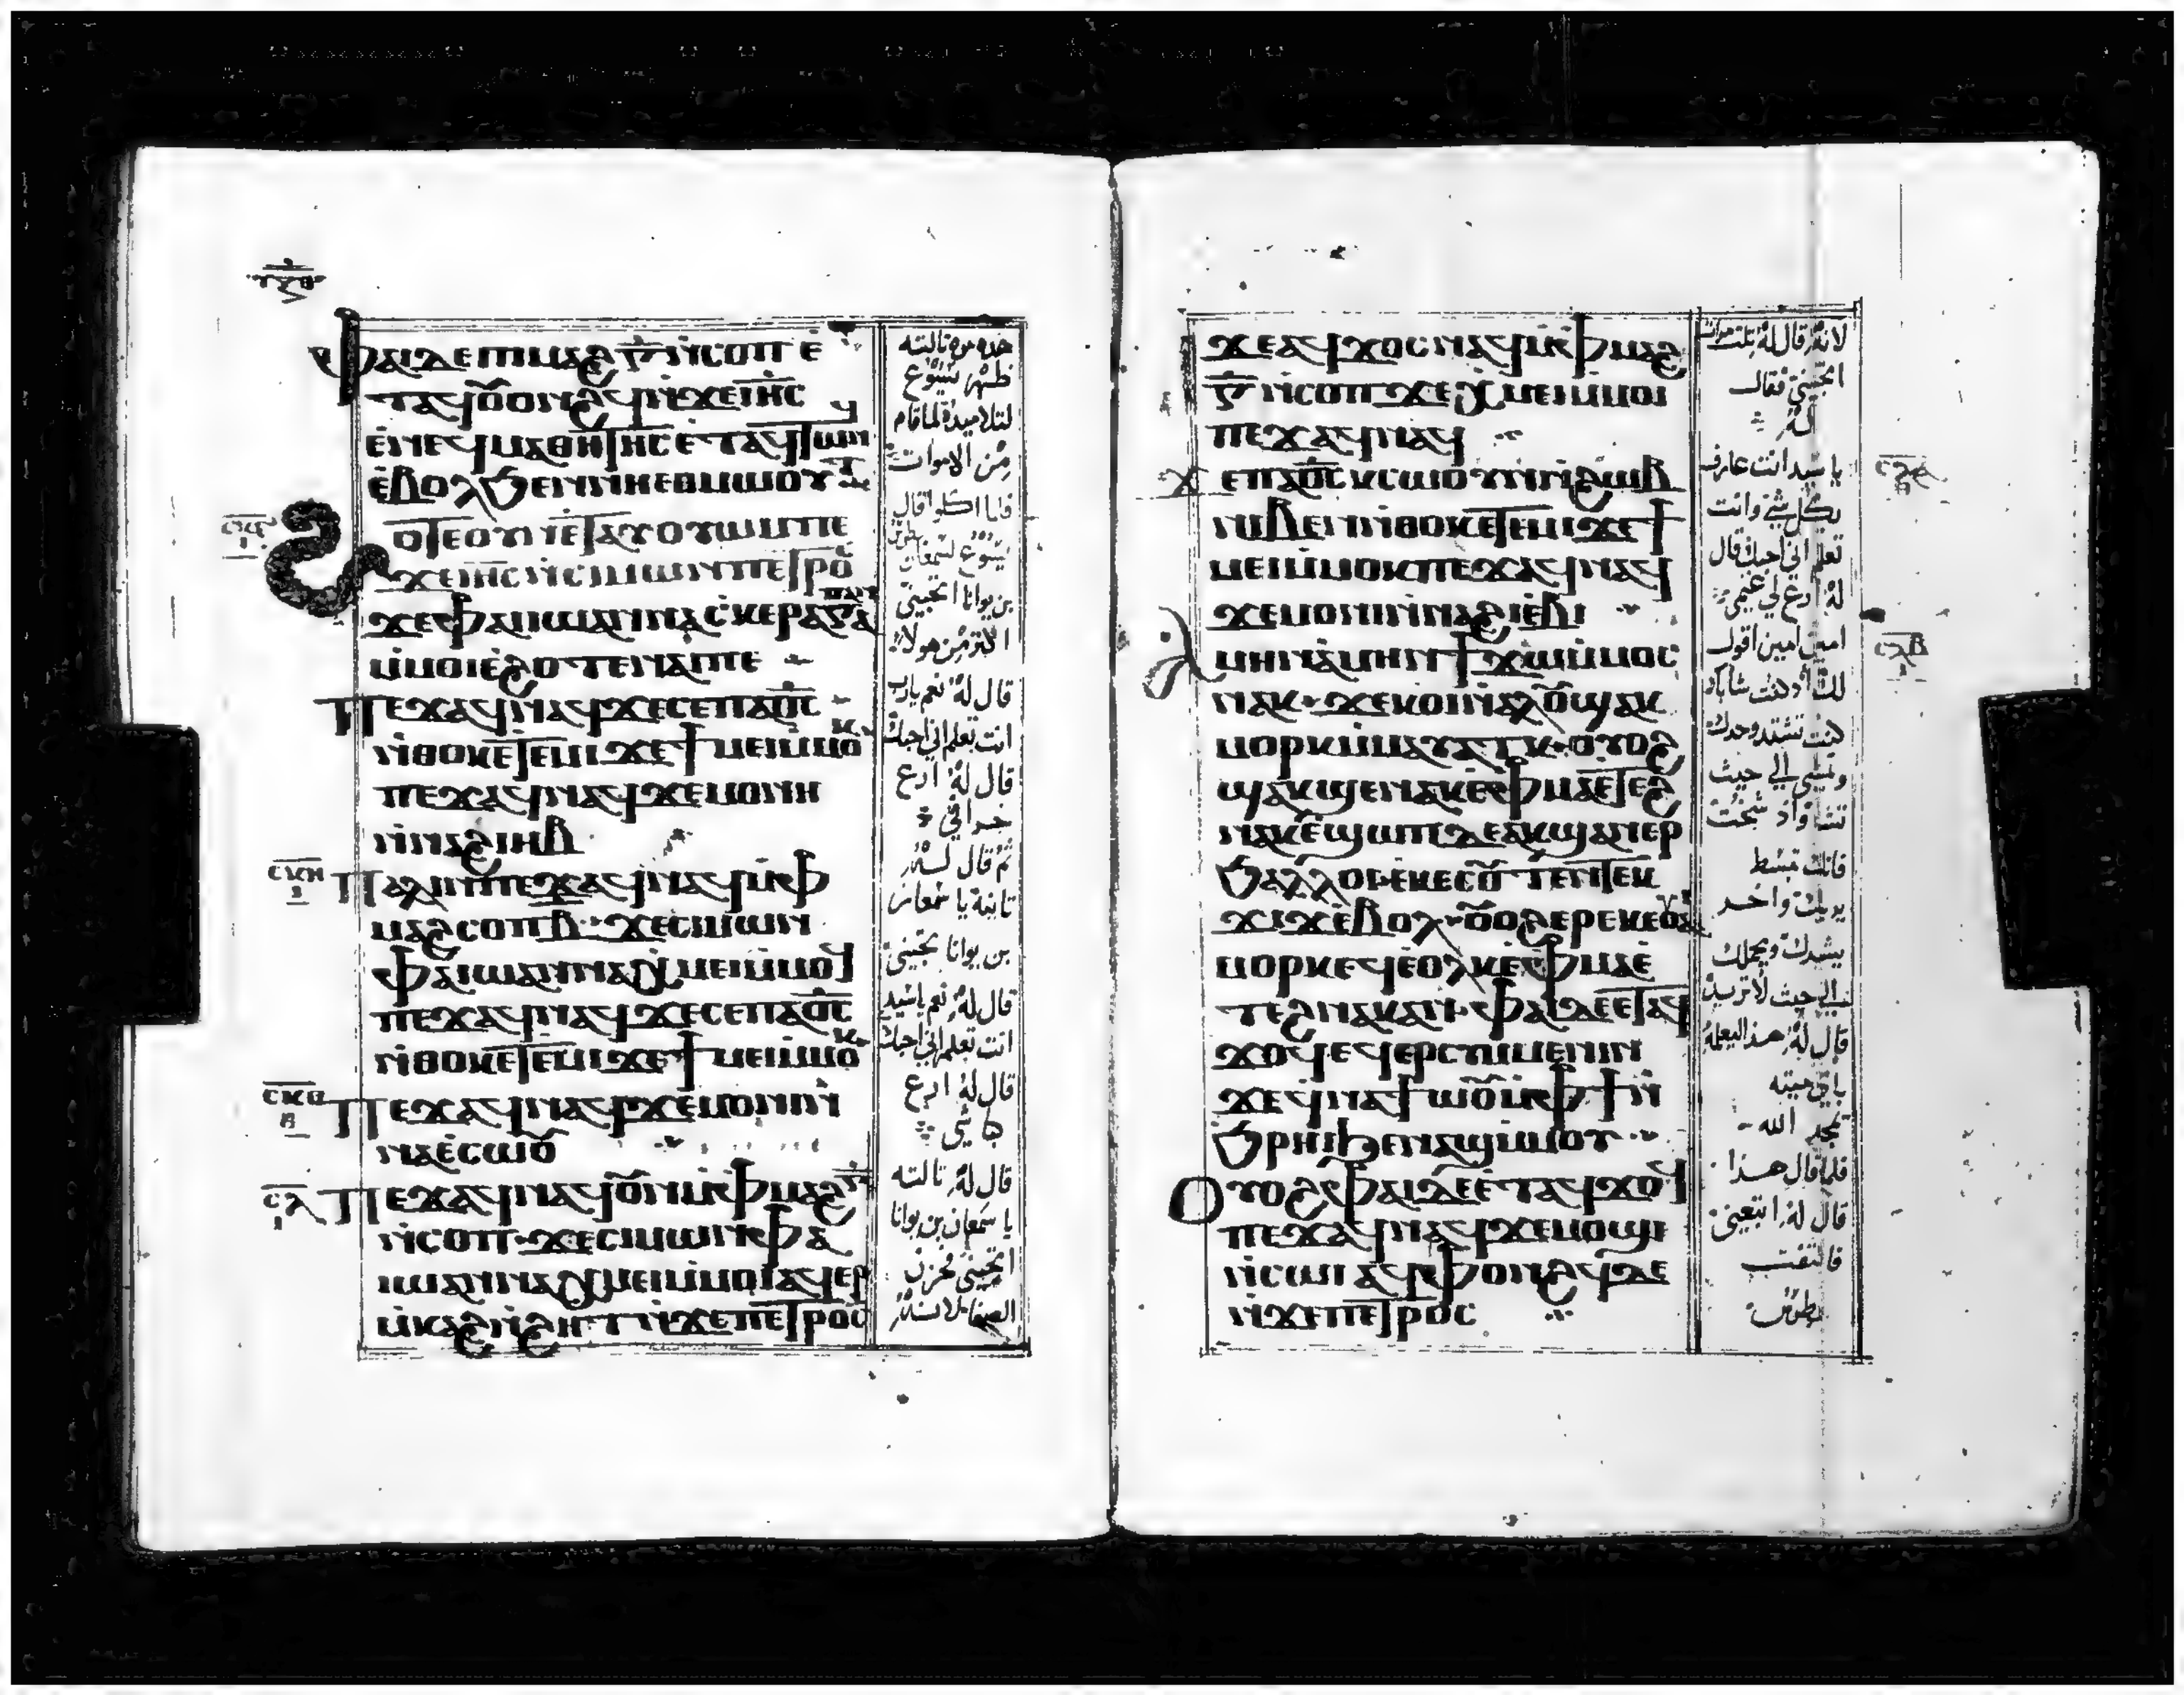 ⲫⲁⲓⲇⲉⲡⲓⲙⲁϩⲅ̅ⲛ̀ⲥⲟⲡⲉ̀
ⲧⲁϥⲟ̅ⲟⲛϩϥⲛ̀ϫⲉⲓⲏ̅ⲥ
ⲉ̀ⲛⲉϥⲙⲁⲑⲏⲧⲏⲥⲉ̀ⲧⲁϥⲧⲱⲛϥ
ⲉ̀ⲃⲟⲗϧⲉⲛⲛⲏⲉⲑⲙⲱⲟⲩⲧ
ϩⲟⲧⲉⲟⲩⲛⲉ̀ⲧⲁⲩⲟⲩⲱⲙⲡⲉ
ϫⲉⲓⲏ̅ⲥⲛ̀ⲥⲓⲙⲱⲛⲡⲉⲧⲣⲟⲥ
ϫⲉⲫⲁⲓⲱⲁⲛⲛⲁⲥⲕⲉⲣⲁⲅⲁⲡⲁⲛ
ⲙ̀ⲙⲟⲓⲉ̀ϩⲟⲧⲉⲛⲁⲓ
ⲡⲉϫⲁϥⲛⲁϥϫⲉⲥⲉⲡⲁϭ̅ⲥ
ⲛ̀ⲑⲟⲕⲉⲧⲉⲙⲓϫⲉϯⲙⲉⲓⲙ̀ⲙⲟⲕ
ⲡⲉϫⲁϥⲛⲁϥϫⲉⲙⲟⲛⲓ
ⲛ̀ⲛⲁϩⲓⲏⲃ
ⲥⲕⲏ
ⲡⲁⲗⲓⲛⲡⲉϫⲁϥⲛⲁϥⲙ̀ⲫ
ⲙⲁϩⲥⲟⲡⲃ̅ϫⲉⲥⲓⲙⲱⲛ
ⲫⲁⲓⲱⲁⲛⲛⲁⲭⲙⲉⲓⲙ̀ⲙⲟⲓ
ⲡⲉϫⲁϥⲛⲁϥϫⲉⲥⲉⲡⲁϭ̅ⲥ
ⲛ̀ⲑⲟⲕⲉⲧⲉⲙⲓϫⲉϯⲙⲉⲓⲙ̀ⲙⲟⲕ
ⲥⲕⲑ
ⲡⲉϫⲁϥⲛⲁϥϫⲉⲙⲟⲛⲓⲛ̀
ⲛⲁⲉ̀ⲥⲱⲟ̅
ⲥⲗ
ⲡⲉϫⲁϥⲛⲁϥⲟ̅ⲛⲙ̀ⲫⲙⲁϩⲅ̅
ⲛ̀ⲥⲟⲡϫⲉⲥⲓⲙⲱⲛⲫⲁ
ⲓⲱⲁⲛⲛⲁⲭⲙⲉⲓⲙ̀ⲙⲟⲓⲁϥⲉⲣ
ⲙ̀ⲕⲁϩⲛ̀ϩⲏⲧⲛ̀ϫⲉⲡⲉⲧⲣⲟⲥ
هذه مره ثالثه
ظهر يسوع
لتلاميذه لما قام
من الاموات
فلما اكلوا قال
يسوع لسمعان بطرس
بن يوانا اتحبني
اكثر من هولاء
قال له نعم يارب
انت تعلم اني احبك
قال له ارع
خرافي
ثم قال له
ثانية يا سمعان
بن يوانا تحبني
قال له نعم يا سيد
انت تعلم اني احبك
قال له ارع
كباشي
قال له ثالثه
يا سمعان بن يوانا
اتحبني فحزن
الصفا لانه
ϫⲉⲁϥϫⲟⲥⲛⲁϥⲙ̀ⲫⲙⲁϩ
ⲅ̅ⲛ̀ⲥⲟⲡϫⲉⲭⲙⲉⲓⲙ̀ⲙⲟⲓ
ⲡⲉϫⲁϥⲛⲁϥ
ϫⲉⲡⲁϭ̅ⲥⲕⲥⲱⲟⲩⲛⲛ̀ϩⲱⲃ
ⲛⲓⲃⲉⲛⲛ̀ⲑⲟⲕⲉⲧⲉⲙⲓϫⲉϯ
ⲙⲉⲓⲙ̀ⲙⲟⲕⲡⲉϫⲁϥⲛⲁϥ
ϫⲉⲙⲟⲛⲓⲛ̀ⲛⲁϩⲓⲉ̀ⲃⲓ
ⲁⲙⲏⲛⲁⲙⲏⲛϯϫⲱⲙ̀ⲙⲟⲥ
ⲛⲁⲕϫⲉⲕⲟⲓⲛ̀ⲁⲗⲟ̅ϣⲁⲕ
ⲙⲟⲣⲕⲙ̀ⲙⲁⲩⲁⲧⲕⲟⲩⲟϩ
ϣⲁⲕϣⲉⲛⲁⲕⲉ̀ⲫⲙⲁⲉ̀ⲧⲉϩ
ⲛⲁⲕⲉ̀ϣⲱⲡⲇⲉⲁⲕϣⲁⲛⲉⲣ
ϧⲉⲗⲗⲟⲉⲕⲉⲥⲟ̅ⲧⲉⲛⲧⲉⲕ
ϫⲓϫⲉ̀ⲃⲟⲗⲟ̅ⲟϩⲉⲣⲉⲕⲉⲟⲩⲁⲓ
ⲙⲟⲣⲕⲉϥⲉ̀ⲟⲗⲕⲉ̀ⲫⲙⲁⲉ̀
ⲧⲉϩⲛⲁⲕⲁⲛⲫⲁⲓⲇⲉⲉ̀ⲧⲁϥ
ϫⲟϥⲉϥⲉⲣⲥⲩⲙⲙⲉⲛⲓⲛ
ϫⲉϥⲛⲁϯⲱⲟ̅ⲙ̀ⲫϯⲛ̀
ϧⲣⲏⲓϧⲉⲛⲁϣⲙ̀ⲙⲟⲩ
ⲟⲩⲟϩⲫⲁⲓⲇⲉⲉ̀ⲧⲁϥϫⲟϥ
ⲡⲉϫⲁϥⲛⲁϥϫⲉⲙⲟϣⲓ
ⲛ̀ⲥⲱⲓⲁϥⲫⲟⲛϩϥⲇⲉ
ⲛ̀ϫⲉⲡⲉⲧⲣⲟⲥ
لانه قال له ثلث مرات
اتحبني فقال
له
يا سيد انت عارف
بكل شي وانت
تعلم اني احبك قال
له ارع لي غنمي
امين امين اقول
لك اذ كنت شابا
كنت تشد وحدك
وتمشي الي حيث
تشا واذ شخت
فانك تبسط
يديك واخر
يشدك ويحملك
الي حيث لا تريد
قال له هذا ليعلمه
باي ميته
يمجد الله
فلما قال هذا
قال له اتبعني
فالتفت
بطرس
ⲥⲗⲁ
ⲥⲗⲃ